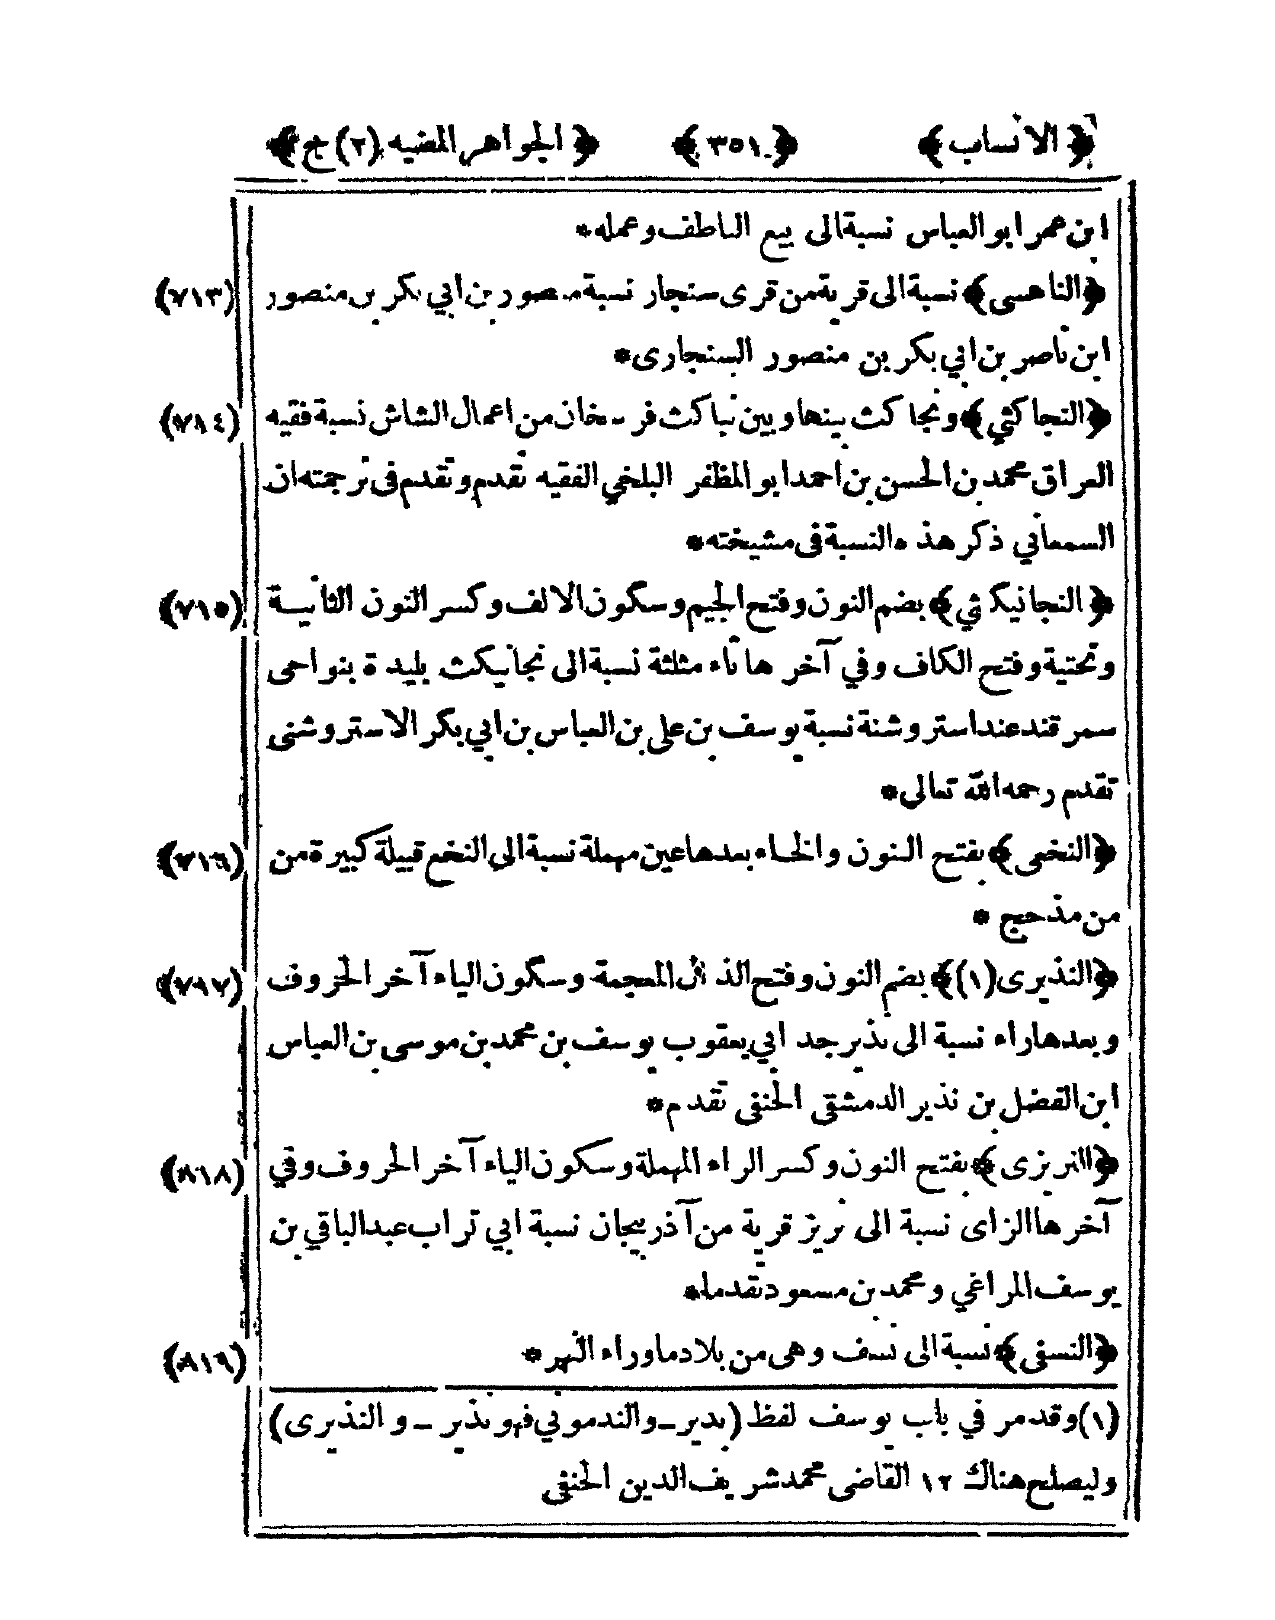 ﴿الانساب﴾ ﴿٣٥١﴾ ﴿الجواهر المضيه (٢) ج﴾
ابن عمر ابو العباس نسبة الى بيع الناطف وعمله*
﴿الناهسى﴾ نسبة الى قرية من قرى سنجار نسبة منصور بن ابي بكر بن منصور (٧١٣)
ابن ناصر بن ابي بكر بن منصور السنجارى*
﴿النجاكثي﴾ ونجاكث بينها وبين بناكث فرسخان من اعمال الشاش نسبة فقيه (٧١٤)
العراق محمد بن الحسن بن احمد ابو المظفر البلخي الفقيه تقدم وتقدم فى ترجمته ان
السمعاني ذكر هذه النسبة فى مشيخته*
﴿النجانيكثي﴾ بضم النون وفتح الجيم وسكون الالف وكسر النون الثانية (٧١٥)
وتحتية وفتح الكاف وفي آخرها ثاء مثلثة نسبة الى نجانيكث بليدة بنواحى
سمرقند عند استروشنة نسبة يوسف بن على بن العباس بن ابي بكر الاستروشنى
تقدم رحمه الله تعالى*
﴿النخعى﴾ بفتح النون والخاء بعدها عين مهملة نسبة الى النخع قبيلة كبيرة من (٧١٦)
من مذحج *
﴿النذيرى (١)﴾ بضم النون وفتح الذال المعجمة وسكون الياء آخر الحروف (٧١٧)
وبعدها راء نسبة الى نذير جد ابي يعقوب يوسف بن محمد بن موسى بن العباس
ابن الفضل بن نذير الدمشقى الحنفى تقدم*
﴿النريزى﴾ بفتح النون وكسر الراء المهملة وسكون الياء آخر الحروف وفي (٨١٨)
آخرها الزاى نسبة الى نريز قرية من آذربيجان نسبة ابي تراب عبد الباقي بن
يوسف المراغي ومحمد بن مسعود تقدما*
﴿النسفى﴾ نسبة الى نسف وهى من بلاد ماوراء النهر* (٨١٩)
(١) وقد مر في باب يوسف لفظ (بدير ــ والندموني فهو نذير ــ والنذيرى)
وليصلح هناك ١٢ القاضى محمد شريف الدين الحنفي